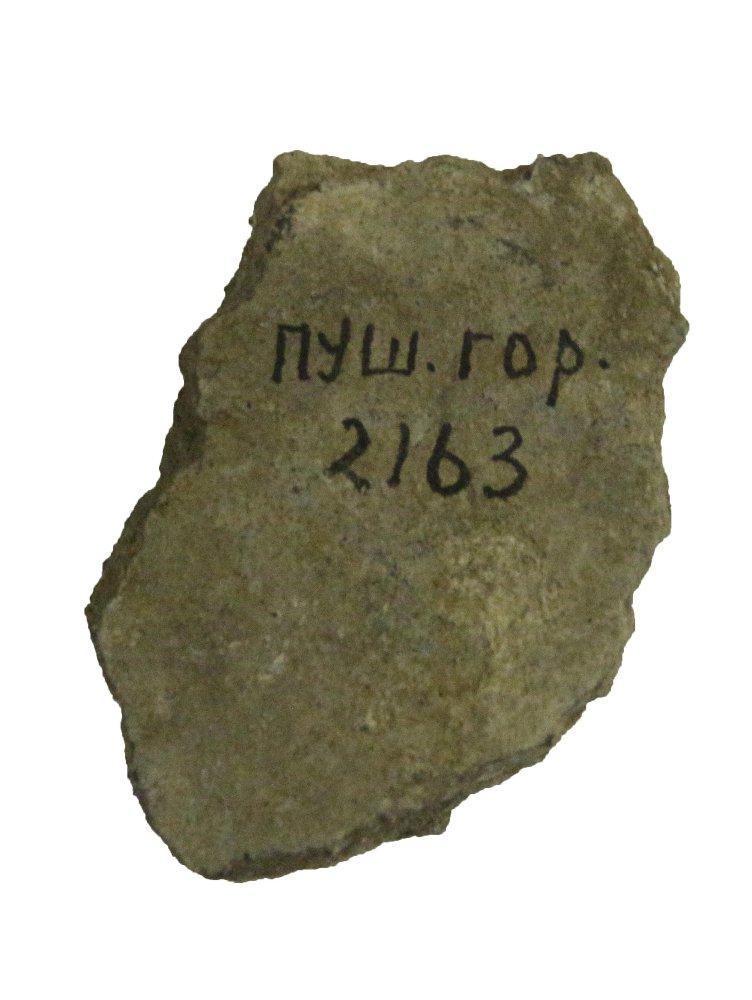 ПУШ. гор.
2163